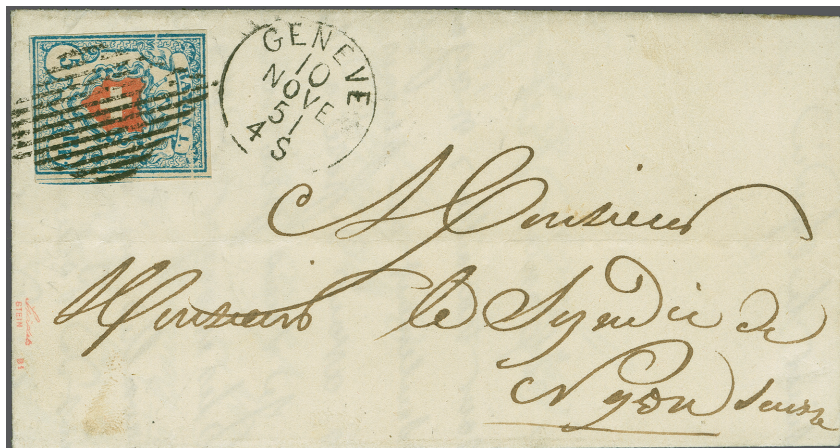 GENEVE
10
NOVE
51
4 S
A Monsieur
Monsieur le Syndic de
Nyon Suisse
STEIN